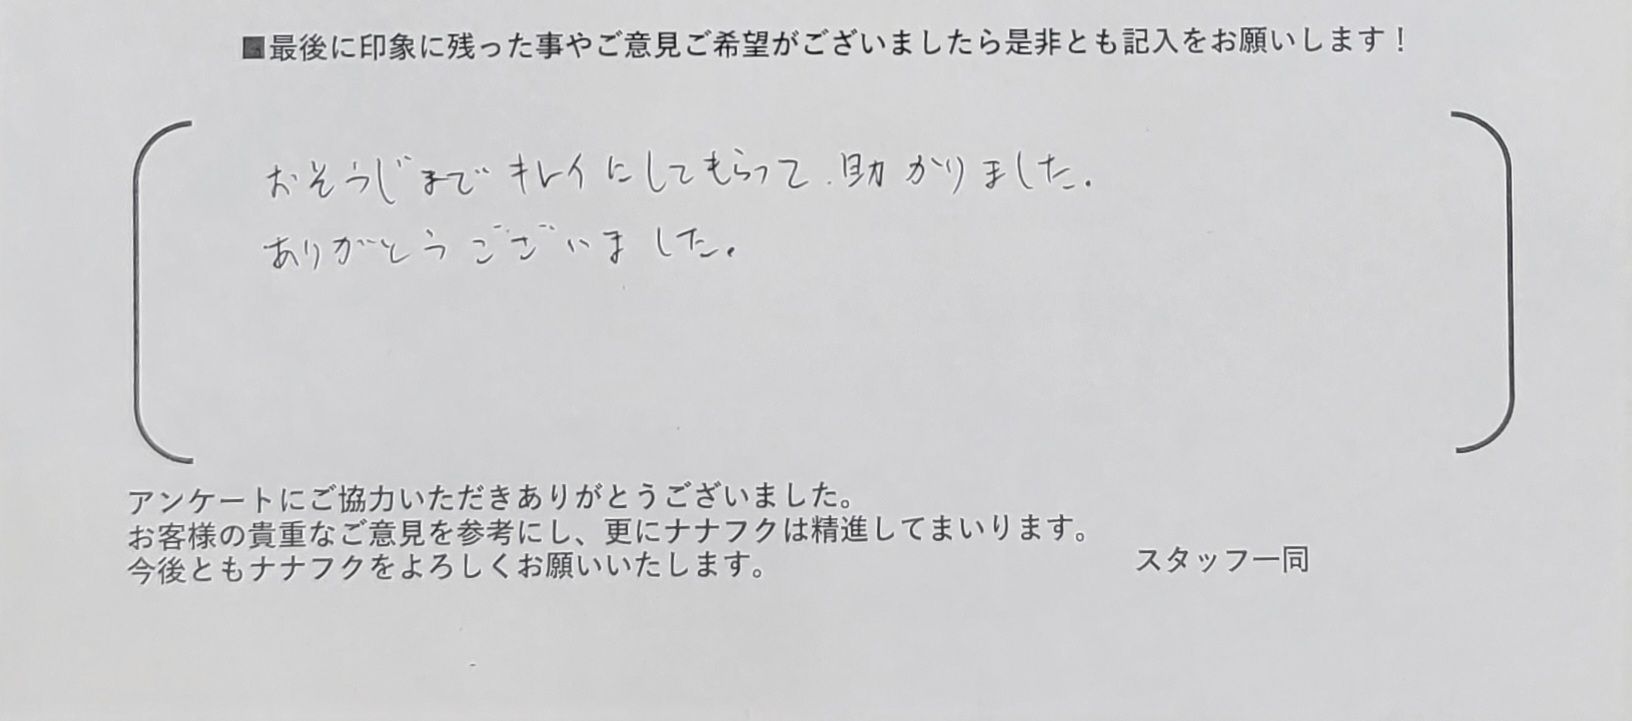 ■最後に印象に残った事やご意見ご希望がございましたら是非とも記入をお願いします！
おそうじまでキレイにしてもらって、助かりました。
ありがとうございました。
アンケートにご協力いただきありがとうございました。
お客様の貴重なご意見を参考にし、更にナナフクは精進してまいります。
今後ともナナフクをよろしくお願いいたします。
スタッフ一同